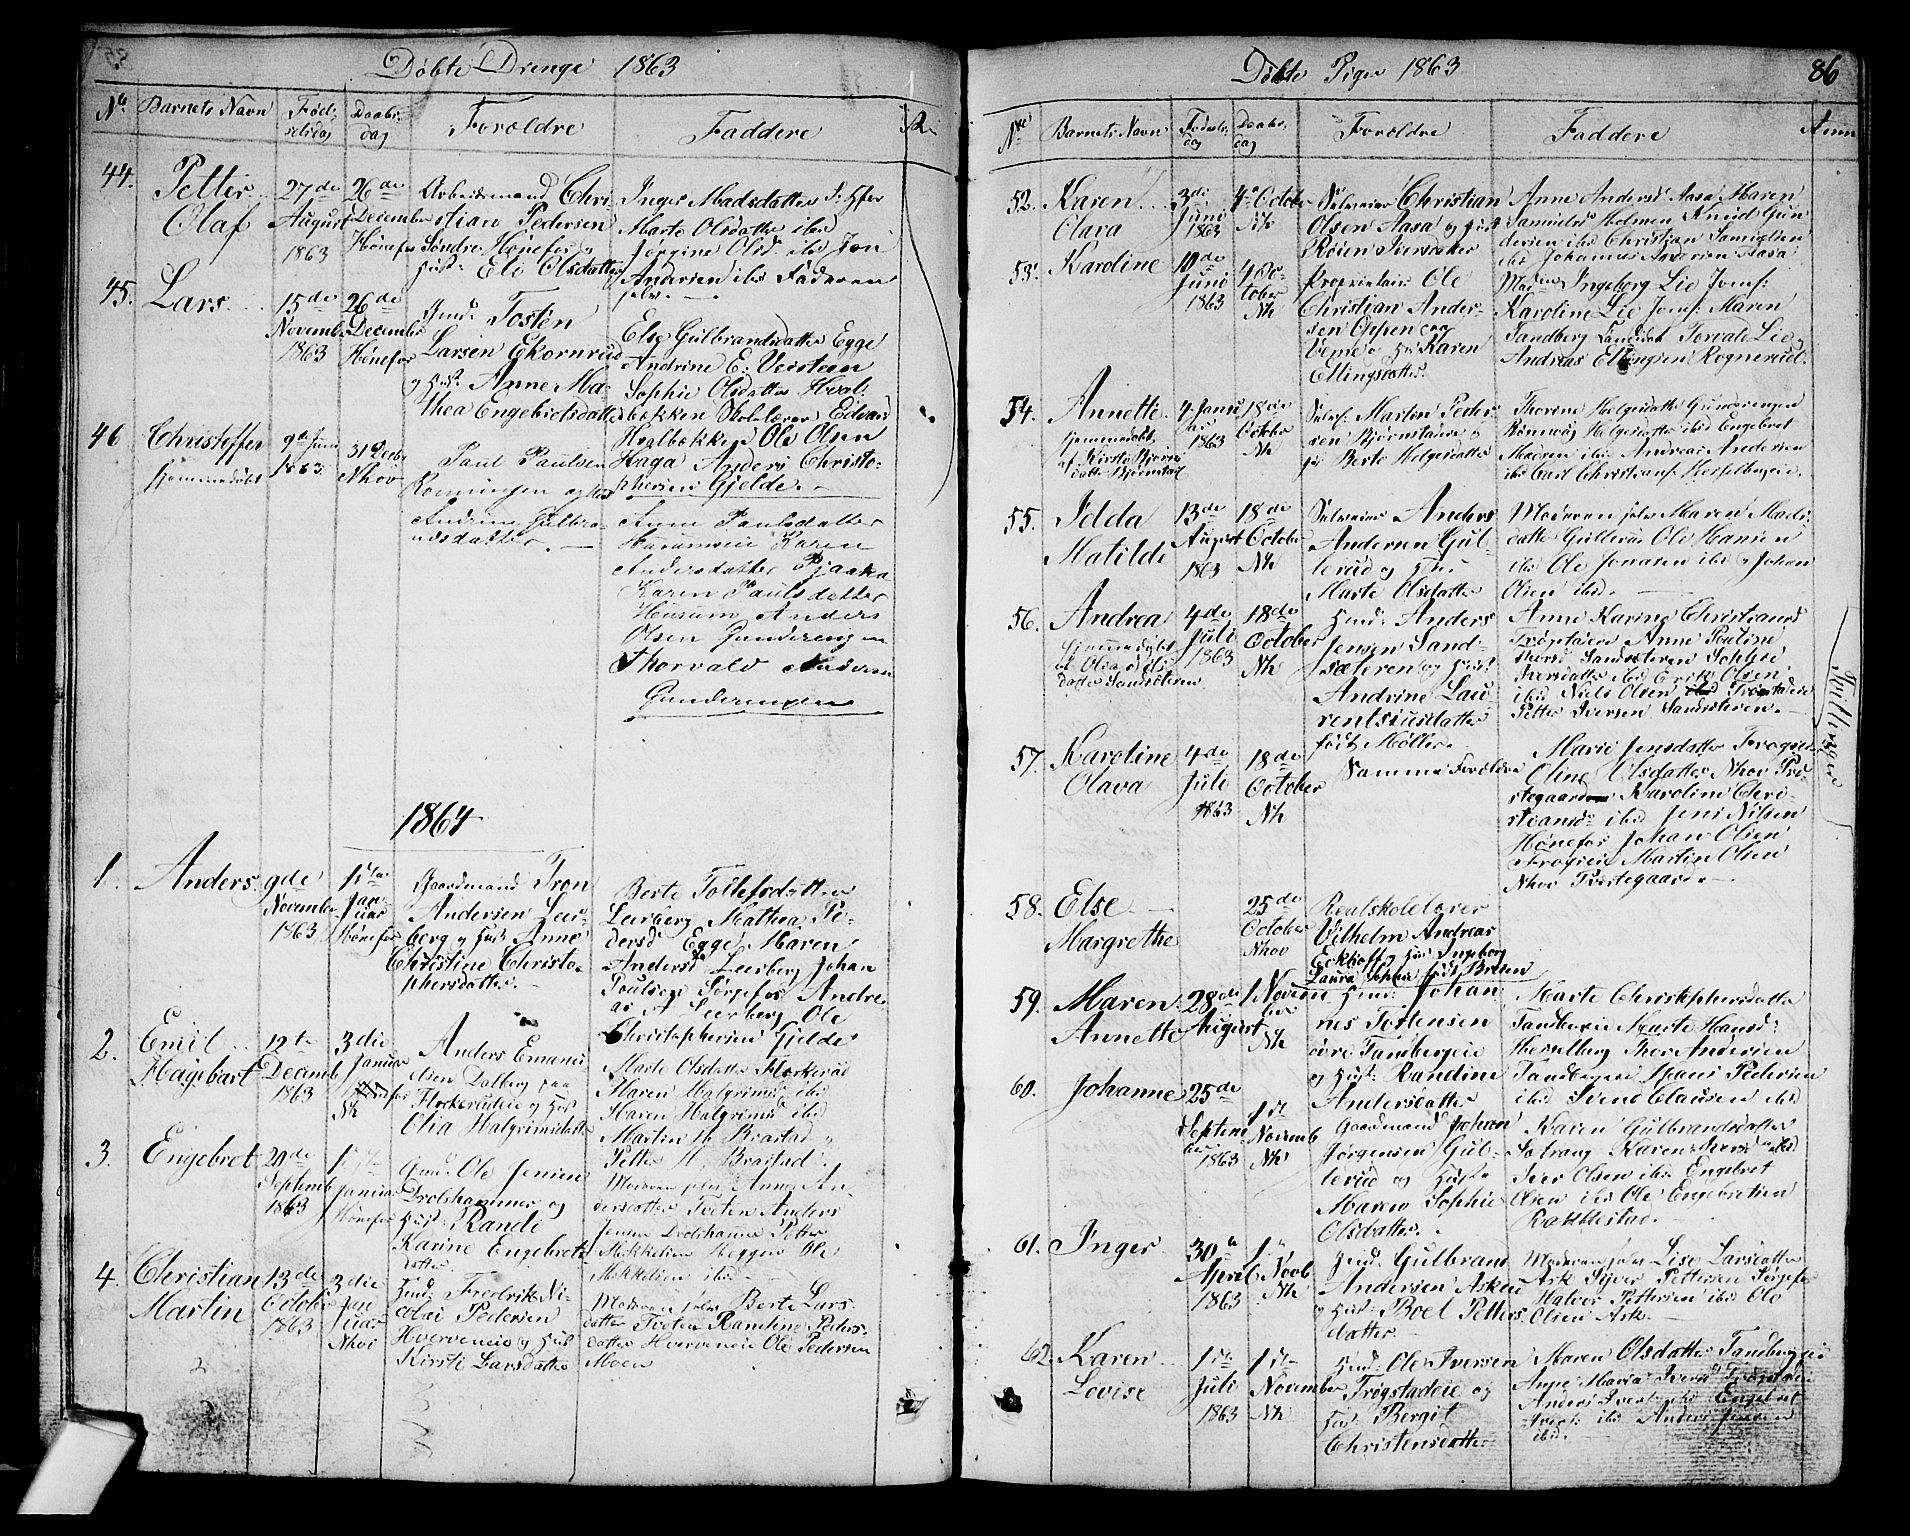 Döbte Drenge 1863
No Barnets Navn Föd-
selsdag Daabs-
dag Forældre Faddere
44. Petter
Olaf
27de
August
1863
26de
December
Hönefos
Arbeidsmand Chri
stian Pedersen
Söndre Hönefos
Hust: Eli Olsdatter
Inger Madsdatter
Marte Olsdatter ibid
Jörgine Olsd. ibid Jon
Andersen ibid Faderen
selv.
45. Lars
15de
November
1863
26de
December
Hönefos
Gmd: Tosten
Larsen Ekornrud
og Hust. Anne Ma
thea Engebretsdatter
Else Gulbrandsdatter Egge
Andrine E. Veisteen
Sophie Olsdatter Hval:
bækken Skolelærer Edvard
Hvalbækken Ole Olsen
Haga Anders Christo-
phersen Gjelde.
46 Christoffer
hjemmedöbt
9de Juni
1863
31 Decbr
Nhov
Paul Paulsen
Ronningen og Hust
Andrine Gulbra-
ndsdatter.
Anne Paulsdatter
Karen
Andersdatter
Karen Paulsdatter
Anders
Olsen Gunderengen
Thorvald Andersen
Gunderengen
1864
1. Anders
9de
November
1863
1ste
Jan-
uar
Hönefos
Gaardmand Tron
Andersen Leer-
berg og Hust. Anne
Christine Christo-
phersdatter.
Berte Tollefsdatter
Leerberg Mathea Pe-
dersd Egge, Maren
Andersd Leerberg Johan
Poulsen Andre-
as A Leerberg Ole
Christophersen Gjelde
2. Emil
Hagebart
12te
Decemb
1863
3die
Januar
Nh
Anders Emanu
elsen Dalberg paa
Flaskerudeie og Hust
Olia Halgrimsdatter
Marte Olsdatter Flaskerud
Maren Halgrimsd ibid
Karen Halgrimsd ibid
Martin H. Brastad
Petter H. Brastad.
3. Engebret
20de
Septemb
1863
1ste
Januar
Hönefos
Gmd: Ole Jensen
Drolshammer og
Hust: Randi
Karine Engebrets
datter
Moderen selv Anne An-
dersdatter Tveten Anders
Jensen Drolshammer Petter
Mikkelsen Heggen Ole
Mikkelsen ibid
4. Christian
Martin
13de
October
1863
3die
Jan
uar
Nhov
Hmd: Fredrik Ni-
colai Pedersen
Hverveneie og Hust
Kirsti Larsdatter
Moderen selv Berte Lars-
datter Tveten Randine Peders-
datter Hverveneie Ole Pedersen
Moen
Döbte Piger 1863 86
No Barnets Navn Födsels-
dag Daabs-
dag Forældre Faddere Anm
52. Karen
Olava
3die
Juni
1863
4de October
Nh
Selveier Christian
Olsen Aasa og Hust
Anne Andersd Aasa Maren
Samuelsd Holmen Knud Gun
dersen ibid Christian
ibid Johannes Andersen Aasa
53. Karoline
10de
Juni
1863
4 Oc-
tober
Nh
Proprietair Ole
Christian Ander-
sen Oppen og
Veme og Hu Karen
Ellingsdatter.
Madmen Ingeborg Lie Jomf:
Karoline Lie Jomf: Maren
Sandberg Torvald Lie
Andreas Ellingsen Rognerud.
54. Annette
hjemmedöbt
af Kirsti Bjørns
datter Bjørnstad
4 Janu
ar
1863
18de
October
Nh
Selvei. Morten Peder-
sen Bjørnstadeie
Hu Berte Helgesdatter
Thorine Helgesdatter Gunderengen
Rönnoug Helgesdatter ibid Engebret
Madsen ibid Andreas Andersen
ibid Carl Christians. Hesselbergeie.
55. Idda
Matilde
13de
August
1863
18de
October
Nh
Selveier Anders
Andersen Gul-
lerud og Hust
Marte Olsdatter
Moderen selv Maren Mads-
datter Gullerud Ole Hansen
ibid Ole Jonasen ibid Johan
Olsen ibid.
56. Andrea
hjemmedöbt
af Olea
datter Sandsöteren
4de
Juli
1863
18de
October
Nh
Hmd: Anders
Jensen Sand-
sæteren og Hust
Andrine Lau
rentsiusdatter
født Møller.
Anne Karine Christiansd
Trögstadeie Anne Pouline
Sandsöteren Sophie
Iversdatter ibid Erik Olsen
ibid Niels Olsen Trögstadeie
Petter Iversen Sandsöteren.
57. Karoline
Olava
4de
Juli
1863
18de
October
Nh
Samme Forældre
Marie Jensdatter
Oline Olsdatter Nhov Præ-
stegaard Karoline Chri-
stiansd ibid Jens Nilsen
Hönefos Johan Olsen
Martin Olsen
Nhov Præstegaard.
Tvillinger
58. Else
Margrethe
25de
October
Nhov
Realskolelærer
Vilhelm Andreas
Eckhoff og Hust Ingeborg
Laura Sophie født Breen
59. Maren
Annette
28de
August
1 Novem
ber
Nh
Hmd: Johan
nes Tostensen
övre Tandbergeie
og Hust: Randine
Andersdatter
Marte Christophersdatter
Tandbergeie Marte Hansd:
Hesselberg Thor Andersen
Tandbergeie Mons Pedersen
ibid Svend Clausen ibid
60. Johanne
25de
Septem
ber
1863
1ste
Novemb
Nh
Gaardmand Johan
Jörgensen Gul-
lerud og Hust
Maren Sophie
Olsdatter.
Karen Gulbrandsdatter
Sætrang Karen Iversd ibid
Iver Olsen ibid Engebret
Olsen ibid Ole Engebretsen
Rakkestad.
61. Inger
30te
April
1863
1ste
Novb
Nh
Hmd: Gulbran
Andersen Askeie
og Hust: Boel Petters-
datter
Moderen selv Lise Larsdatter
Ask Siver Pettersen
Halvor Pettersen ibid Ole
Olsen Ask.
62. Karen
Lovise
1ste
Juli
1863
1ste
November
Nh
Hmd: Ole Iversen
Trögstadeie og
Hust: Bergit
Christensdatter
Maren Olsdatter Tandbergeie
Anne Maria Iversd Trögstadeie
Anders Iversen ibid Engebret
Iversen ibid Anders Jensen
ibid.